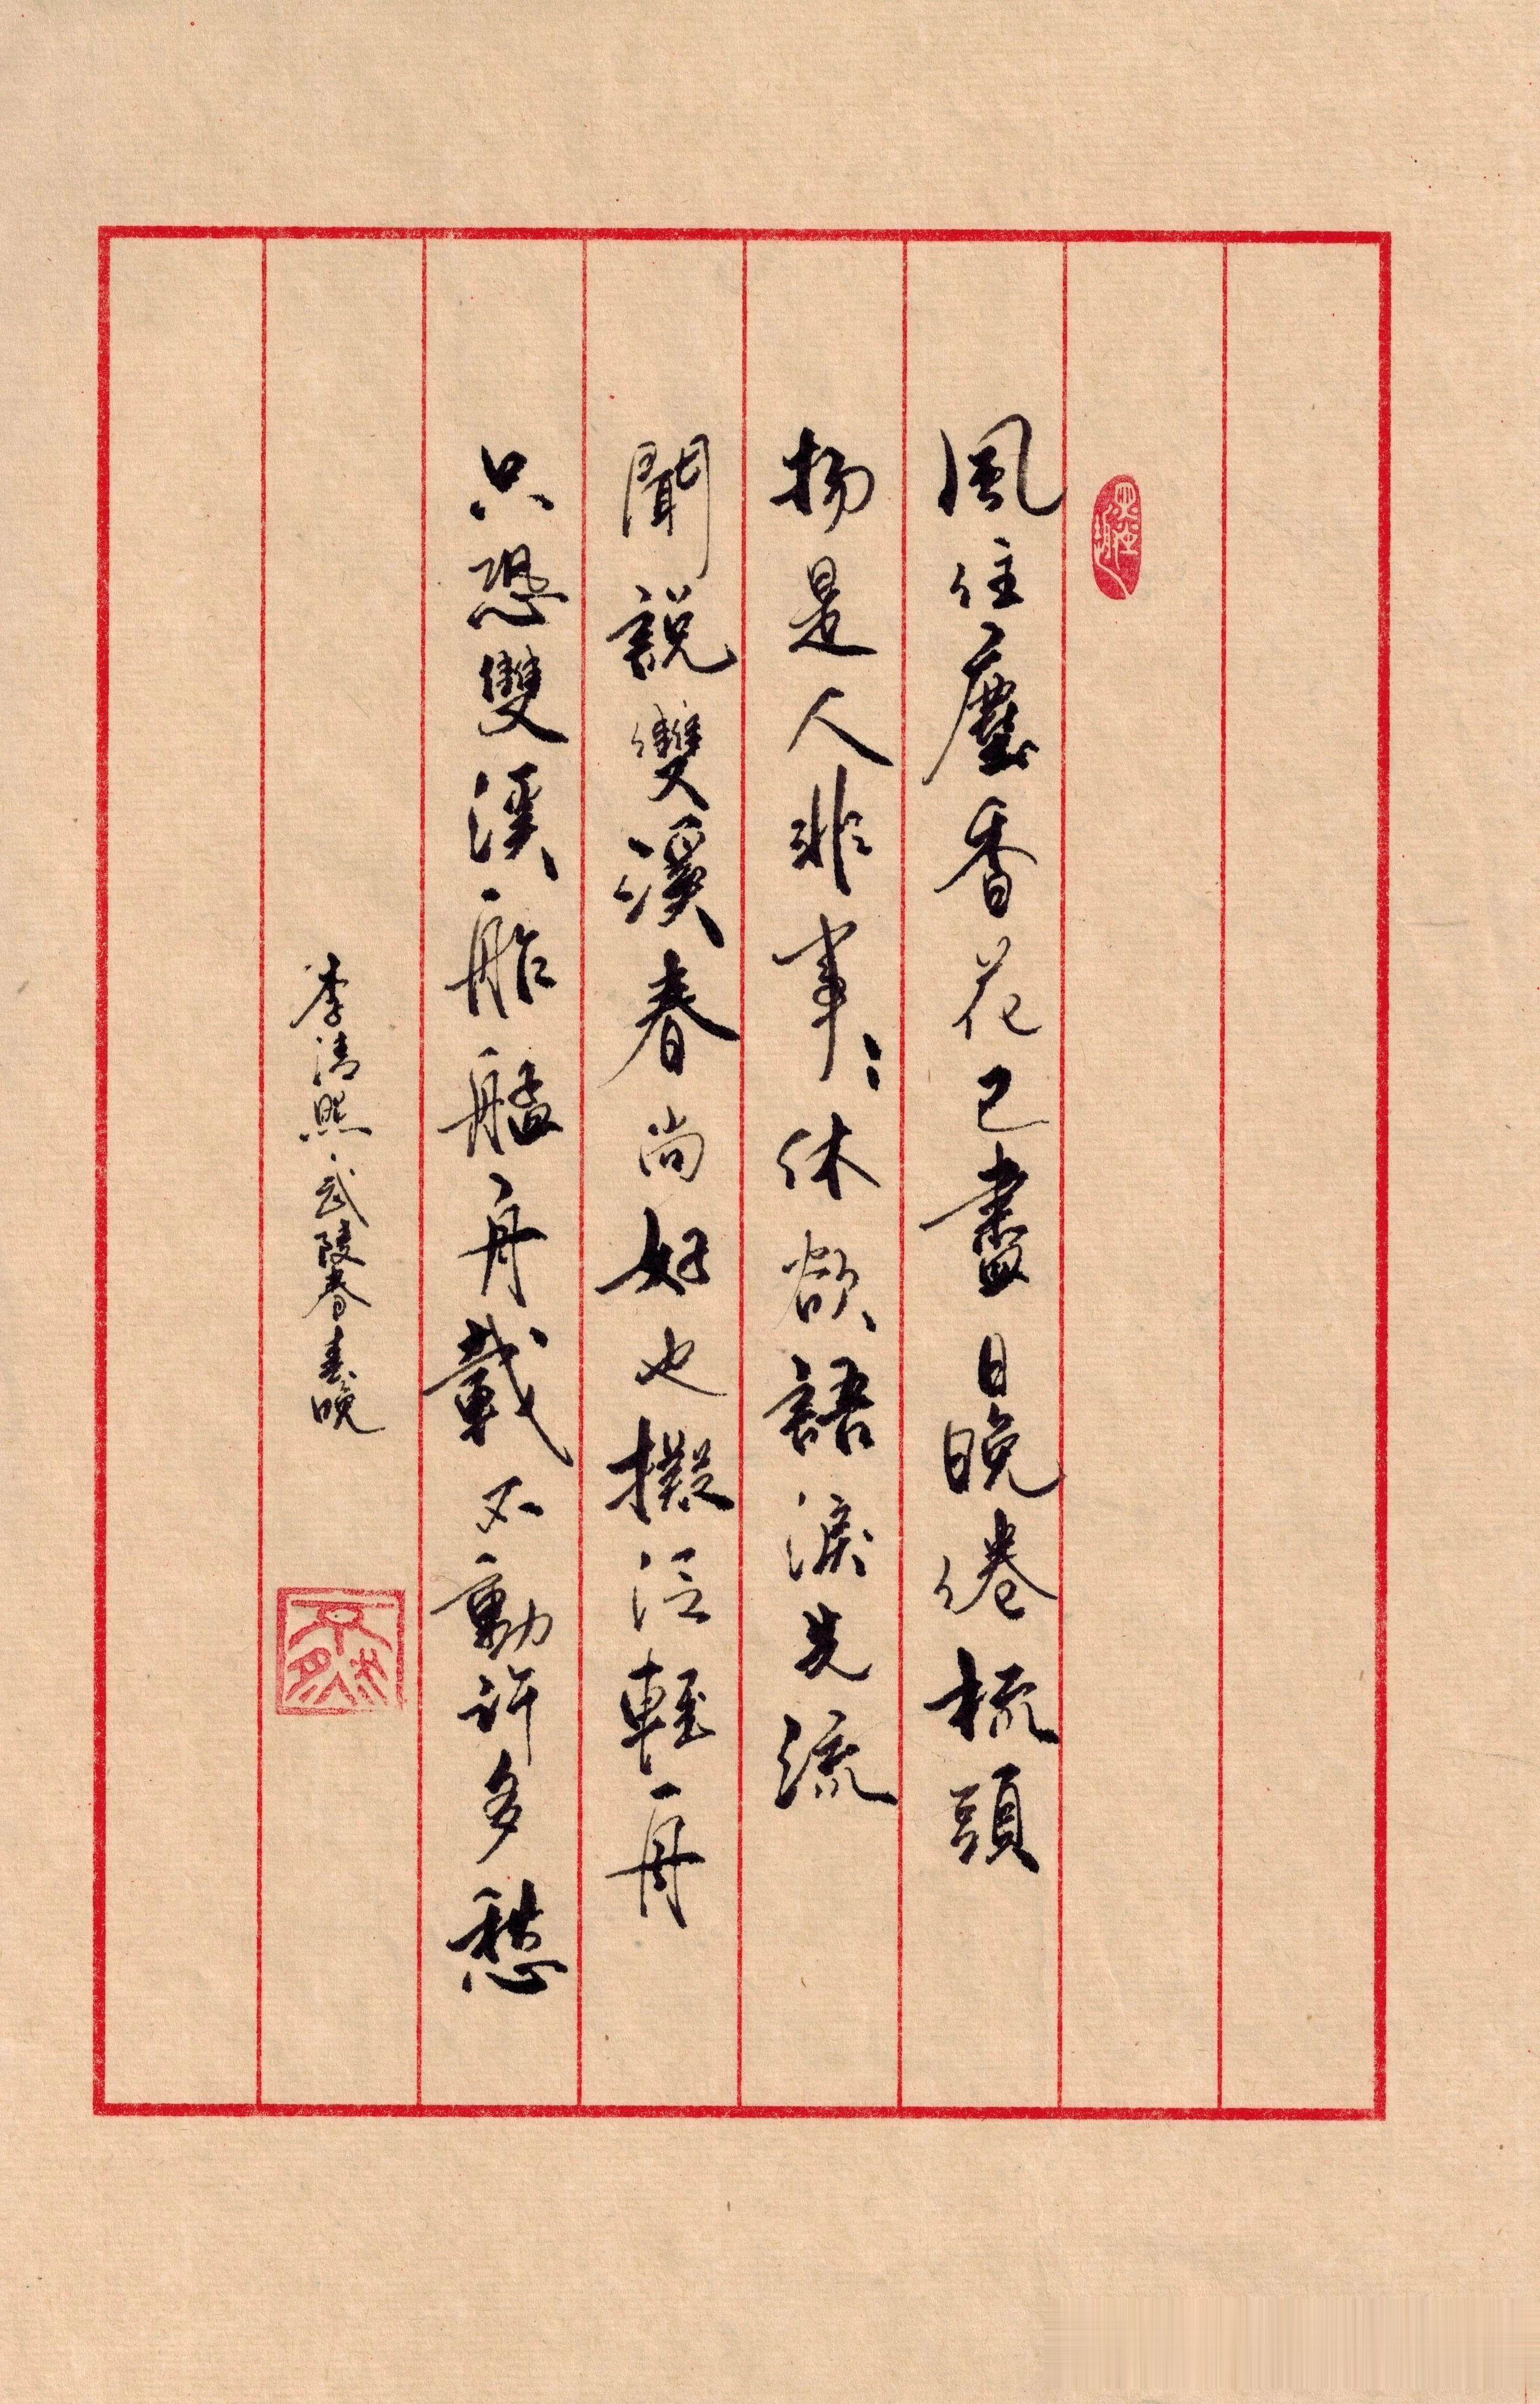 風住塵香花已盡日晚倦梳頭
物是人非事〻休欲語淚先流
聞說雙溪春尚好也擬泛輕舟
只恐雙溪舴艋舟載不動許多愁
李清照·武陵春春晚